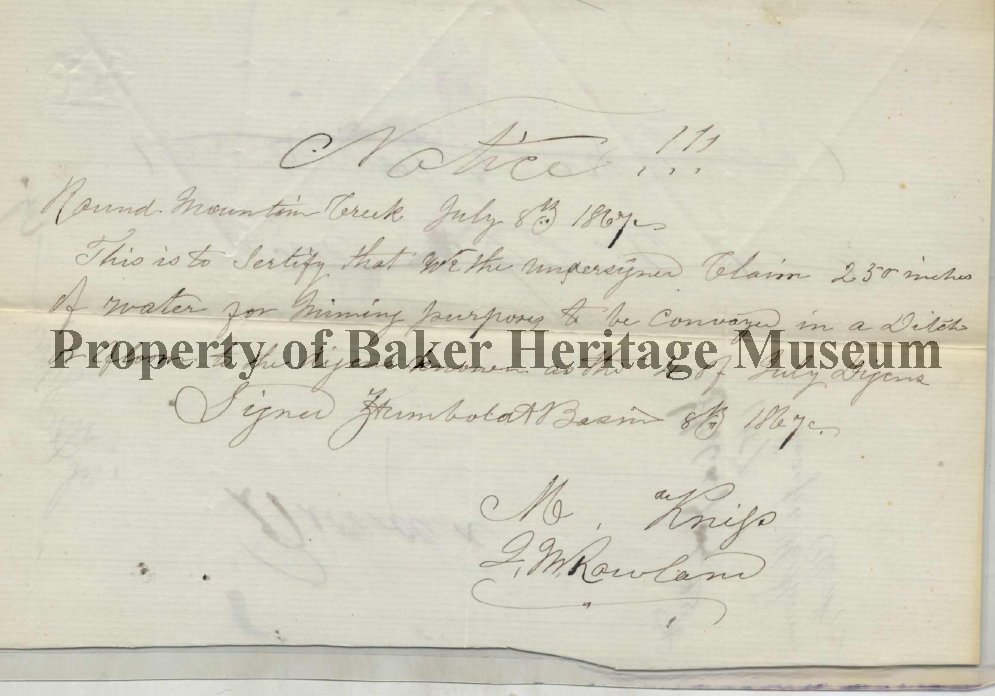 Notice !!!
Round Mountain Creek July 8th 1867
This is to Sertify that We the undersigned Claim 250 inches
of water for Mining purposes to be Convayed in a Ditch
Property of Baker Heritage Museum
to the known as the 4 of July
Signed Humboldt Basin 8th 1867
M.
J. M. Rowland